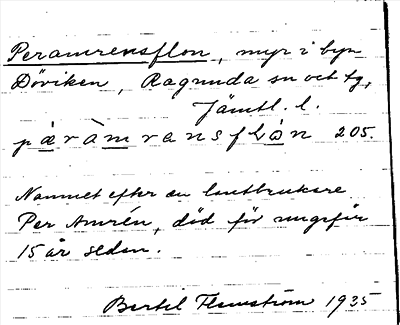 Peramrensflon, myr i byn
Döviken, Ragunda sn och tg,
Jämtl. l.
pæràmransflòn 205.
Namnet efter en lantbrukare
Per Amrén, död för ungefär
15 år sedan.
Bertil Flemström 1935